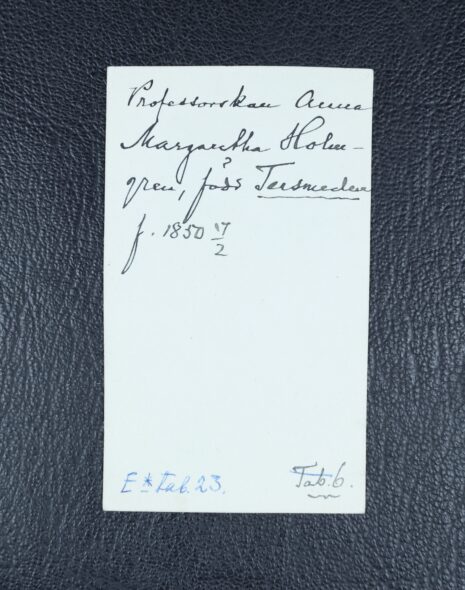 Professorskan Anna
Margaretha Holm-
gren, född Tersmeden
f. 1850 17/2
E * Tab. 23.
Tab. 6.